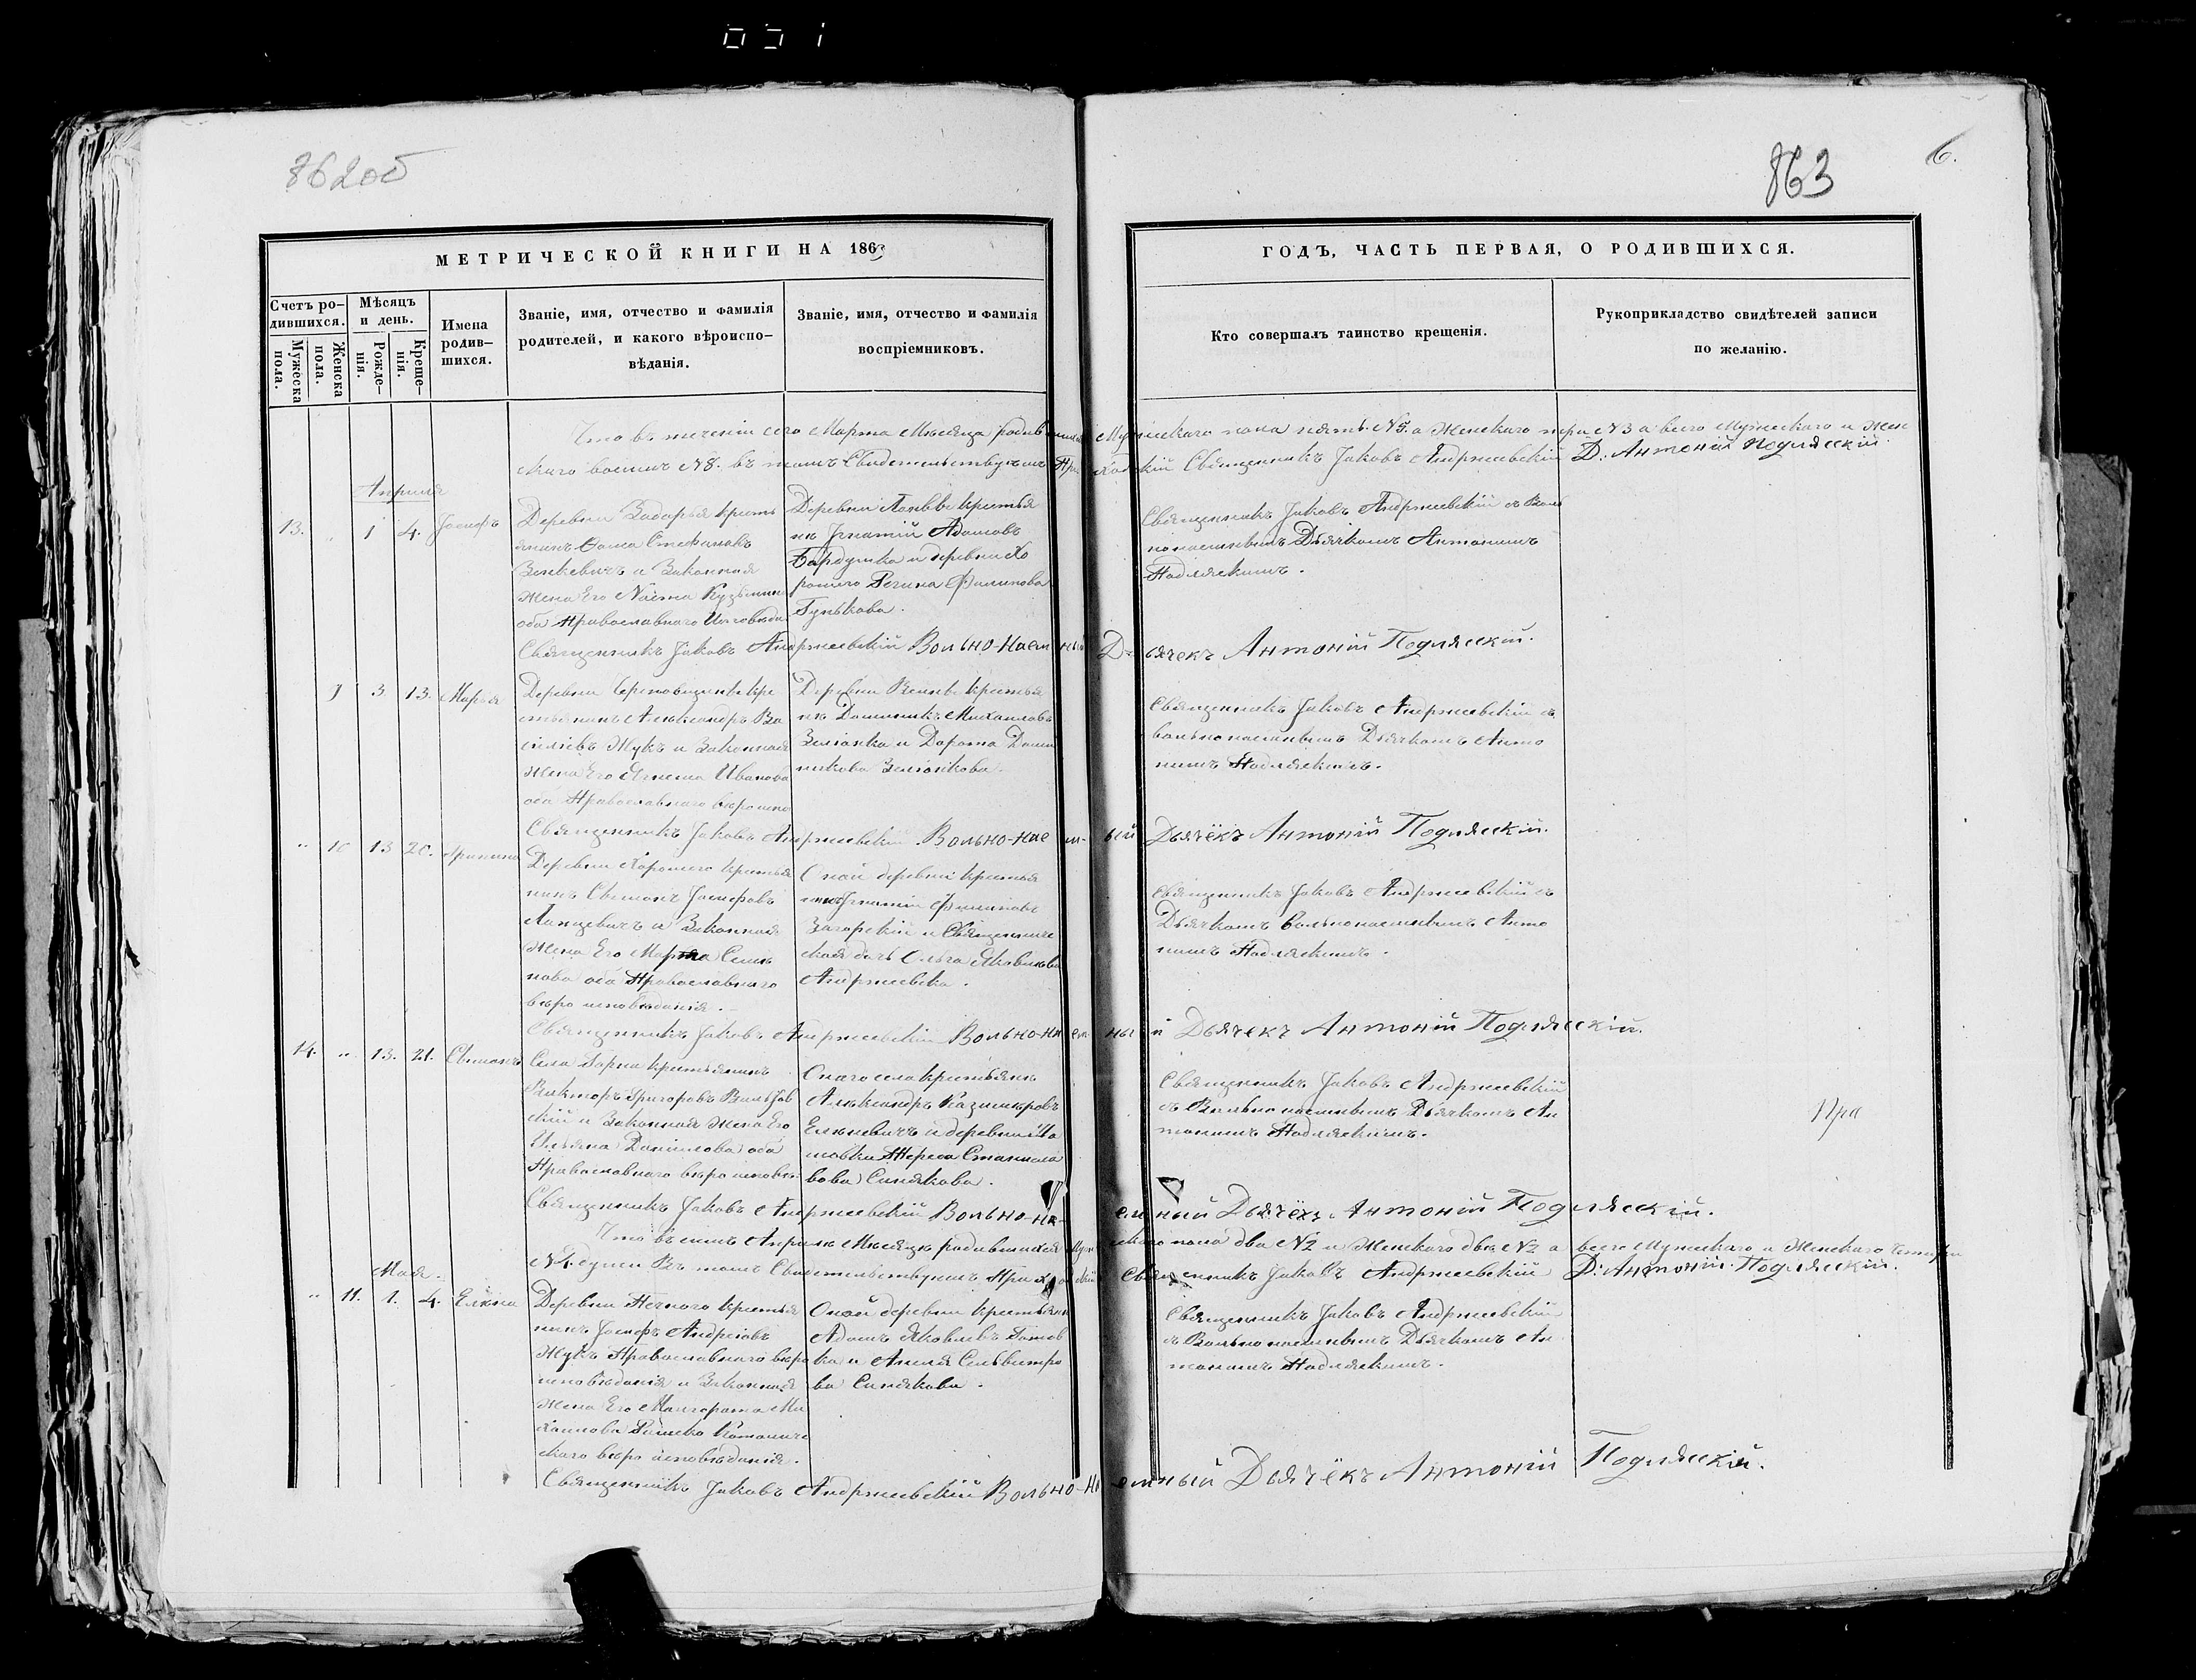 862об
863
6.
МЕТРИЧЕСКОЙ КНИГИ НА 1863
ГОДЪ, ЧАСТЬ ПЕРВАЯ, О РОДИВШИХСЯ.
Счетъ ро-
дившихся.
Мужеска
пола.
Женска
пола.
Мѣсяцъ
и день.
Рожде-
нія.
Креще-
нія.
Имена
родив-
шихся.
Званіе, имя, отчество и фамилія
родителей, и какого вѣроиспо-
вѣданія.
Званіе, имя, отчество и фамилія
воспріемниковъ.
Кто совершалъ таинство крещенія.
Рукоприкладство свидѣтелей записи
по желанію.
Что въ теченіи сего Марта Мѣсяца родившихся Мужескаго пола пять №5. а Женскаго три №3 а всего Мужескаго и Жен
скаго восемь №8. въ томъ Свидетельствуемъ Приходскій Священникъ Јаковъ Андржеевскій Д: Антоній Подляскій.
Априля
13. " 1 4. Јосифъ
Деревни Задорья кресть
янинъ Ѳома Стефановъ
Зенкевичъ и Законная
жена Его Кузьмин
оба Православнаго Исповѣда
Деревни крестья
нъ Јгнатій Адамовъ
и деревни Хо
рошего Регина Филипова
Гунькова.
Священникъ Јаковъ Андржеевскій с Воль
нонаемнымъ Дьячкомъ Антонимъ
Подляскимъ.
Священникъ Јаковъ Андржеевскій Вольно-Наемный Дьячекъ Антоній Подляскій.
9 3 13. Марья
Деревни кре
стьянинъ Александръ Ва
силіевъ Жукъ и Законная
жена Его Агнеша Иванова
оба Православнаго вѣроиспо
Деревни крестья
нъ Доминикъ Михаиловъ
Зеліонка и Дарота Доми
никова Зеліонкова.
Священникъ Јаковъ Андржеевскій съ
вольнонаемнымъ Дьячкомъ Анто
нимъ Подляскимъ.
Священникъ Јаковъ Андржеевскій. Вольно-наемный Дьячёкъ Антоній Подляскій.
" 10 13 20.
Деревни Хорошего крестья
нинъ Свимонъ Јосифовъ
и Законная
жена Его Марта Семе
нова оба Православнаго
вѣроисповѣданія.
Оной деревни крестья
нинъ Јгнатій Филиповъ
Загорскій и Священниче
ская дочь Ольга Яковлева
Андржеевска.
Священникъ Јаковъ Андржеевскій съ
Дьячкомъ Вольнонаемнымъ Анто
нимъ Подляскимъ.
Священникъ Јаковъ Андржеевскій Вольно-наемный Дьячекъ Антоній Подляскій.
14. " 13. 21. Свимонъ
Села крестьянинъ
Викторъ Григоровъ
скій и Законная жена Его
Ульяна Данилова оба
Православнаго вѣроисповѣ
Онаго села крестьянъ
Александръ Казимировъ
и деревни
Тереса Станисла
вова Синякова.
Священникъ Јаковъ Андржеевскій
съ Вольнонаемнымъ Дьячкомъ Ан
тонимъ Подляскимъ.
Пра
Священникъ Јаковъ Андржеевскій Вольно-наемный Дьячёкъ Антоній Подляскій.
Что въ семъ Априлѣ Мѣсяцѣ родившихся Мужескаго пола два №2 и Женскаго двѣ №2 а всего Мужескаго и Женскаго четыри
№4. души Въ томъ Свидетельствуемъ Приходскій Священникъ Јаковъ Андржеевскій Д: Антоній Подляскій.
Мая.
" 11. 1. 4. Елѣна
Деревни крестья
нинъ Јосифъ Андреіовъ
Жукъ Православнаго вѣро
исповѣданія и Законная
жена Его Малгората Ми
хаилова Римско Католиче
скаго вѣроисповѣданія.
Оной деревни крестьянинъ
Адамъ Яковлевъ
ка и Анеля Сильвестро
ва Синякова.
Священникъ Јаковъ Андржеевскій
съ Вольнонаемнымъ Дьячкомъ Ан
тонимъ Подляскимъ.
Священникъ Јаковъ Андржеевскій Вольно-Наемный Дьячёкъ Антоній Подляскій.